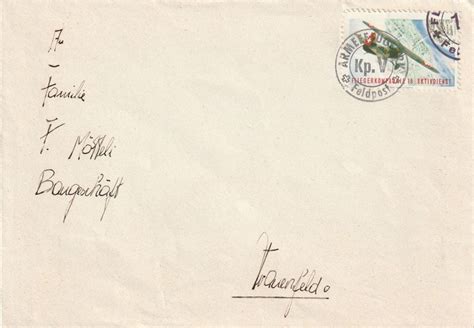 An
Familie
F. Mötteli
Baugeschäft
Frauenfeld.
Kp. V
Feldpost
FLIEGERKOMPAGNIE 10 AKTIVDIENST
1